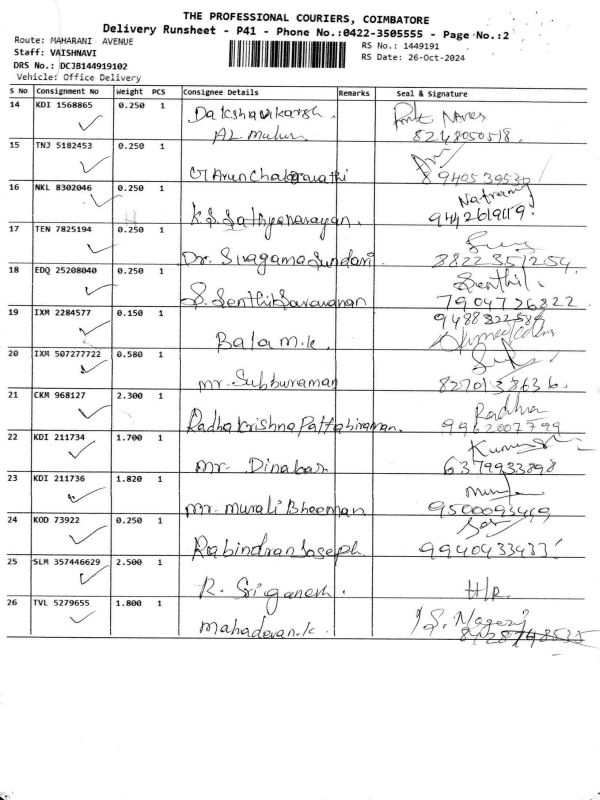 THE PROFESSIONAL COURIERS, COIMBATORE
Delivery Runsheet - P41 - Phone No.:0422-3505555 - Page No.:2
Route: MAHARANI AVENUE
RS No.: 1449191
Staff: VAISHNAVI
RS Date: 26-Oct-2024
DRS No.: DCJB144919102
Vehicle: Office Delivery
S No Consignment No Weight PCS Consignee Details Remarks Seal & Signature
14 KDI 1568865 0.250 1
8248050518.
15 TNJ 5182453 0.250 1
G Arun Chakaravathi
16 NKL 8302046 0.250 1
K.S. Sathyanarayan. 9442619119.
17 TEN 7825194 0.250 1
Dr. Sivagama Sundari. 8822351254.
18 EDQ 25208040 0.250 1 Senthil.
S. Senthil Saravanan 7904726822
19 IXM 2284577 0.150 1
Balam.k.
20 IXM 507277722 0.580 1
mr. Subburaman 8270138636.
21 CKM 968127 2.300 1 Radha
Radha Krishna Pattabiraman. 9962007799
22 KDI 211734 1.700 1
mr. Dinakar 6379933898
23 KDI 211736 1.820 1
mr. murali Bheeman 9500093419
24 KOD 73922 0.250 1
Rabindran Joseph 9940433433
25 SLM 357446629 2.500 1
R. Sri ganesh. H/R
26 TVL 5279655 1.800 1
mahadevan.k.